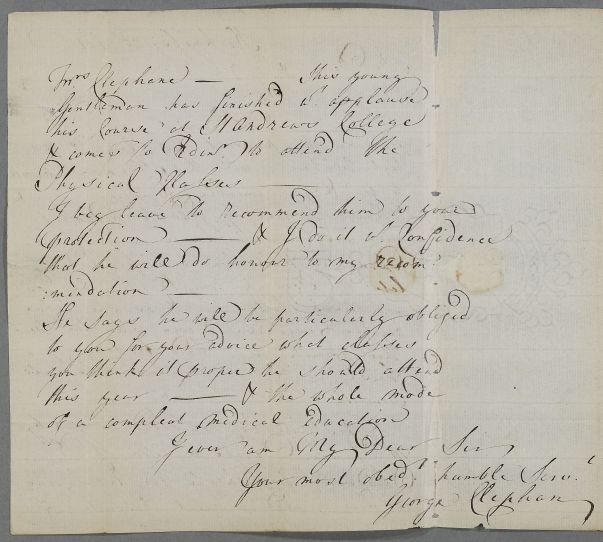 Mrs Clephane — This young
Gentleman has finished wt. applause
his Course at St Andrews College
& comes to Edinr. to attend the
Physical Classes —
I beg leave to recommend him to your
protection — & I do it wt Confidence
that he will do honour to my recom
:mendation —
He says he will be particularly obliged
to you for your advice what classes
you think it proper he should attend
this year — & the whole mode
of a compleat medical Education
I ever am My Dear Sir
Your most obedt. humble Servt.
George Clephan